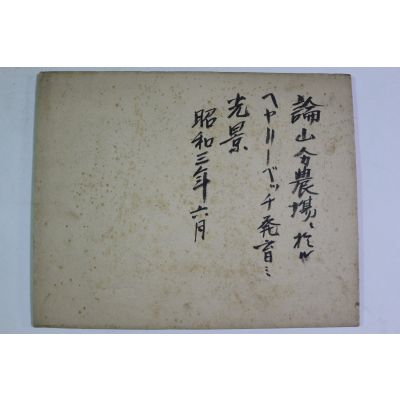 論山分農場ニ於ル
ヘヤリーベッチ発育ミ
光景
昭和三年六月